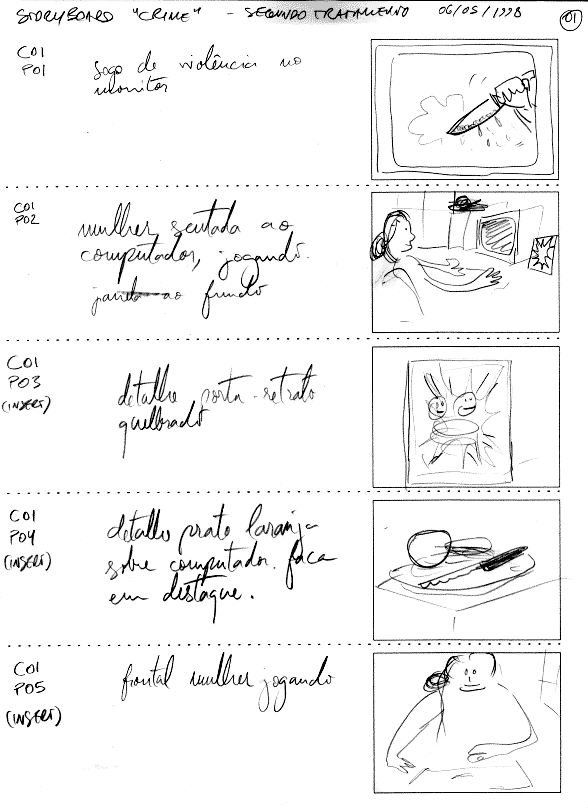 STORYBOARD "CRIME" - SEGUNDO TRATAMENTO 06/05/1998 01
C01
P01
jogo de violência no
monitor
C01
P02
mulher sentada ao
computador, jogando.
janela ao fundo
C01
P03
(INSERT)
detalhe porta-retrato
quebrado
C01
P04
(INSERT)
detalhe prato laranja
sobre computador. faca
em destaque.
C01
P05
(INSERT)
frontal mulher jogando